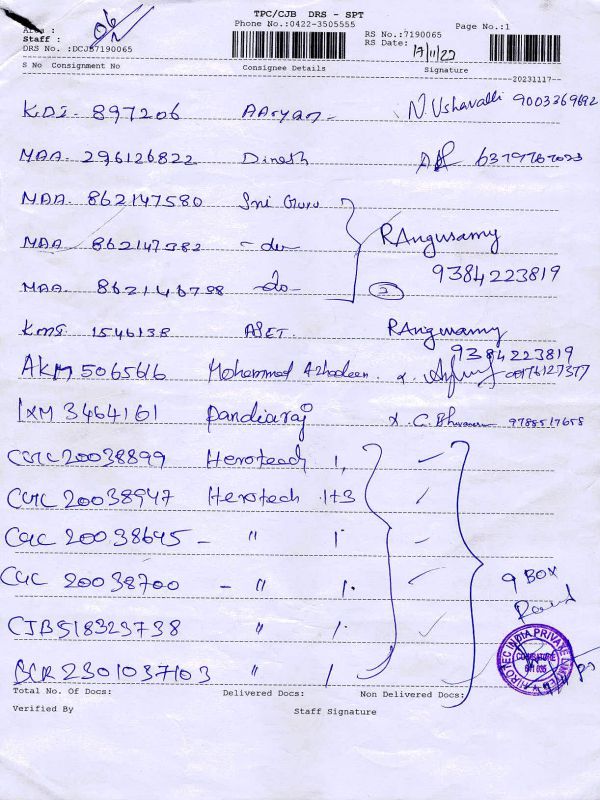 TPC/CJB DRS - SPT
Phone No.:0422-3505555
Page No.:1
Area :
Staff :
DRS No. :DCJB7190065
RS No.:7190065
RS Date: 17/11/22
S No Consignment No Consignee Details Signature
20231117--
KDI. 897206 AAryan N. Ushavalli 9003369692
MAA. 296126822 Dinesh 6379767023
MAA. 862147580 Sri Guru
MAA. 862147382 - do -
RAngusamy
MAA. 862146798 - do - 2 9384223819
KMS 1546138 ASET. RAngusamy
9384223819
AKM 5065616 Mohammed
IXM 3464161 Pandiaraj x C. 9788517658
20038899 Herotech 1,
20038947 Herotech 1+3
20038645 - " 1
20038700 - " 1.
9 BOX
CJB518323738 " 1.
2301037103 " 1
INDIA PRIVATE LIMITED
COIMBATORE
Total No. Of Docs: Delivered Docs: Non Delivered Docs:
Verified By Staff Signature